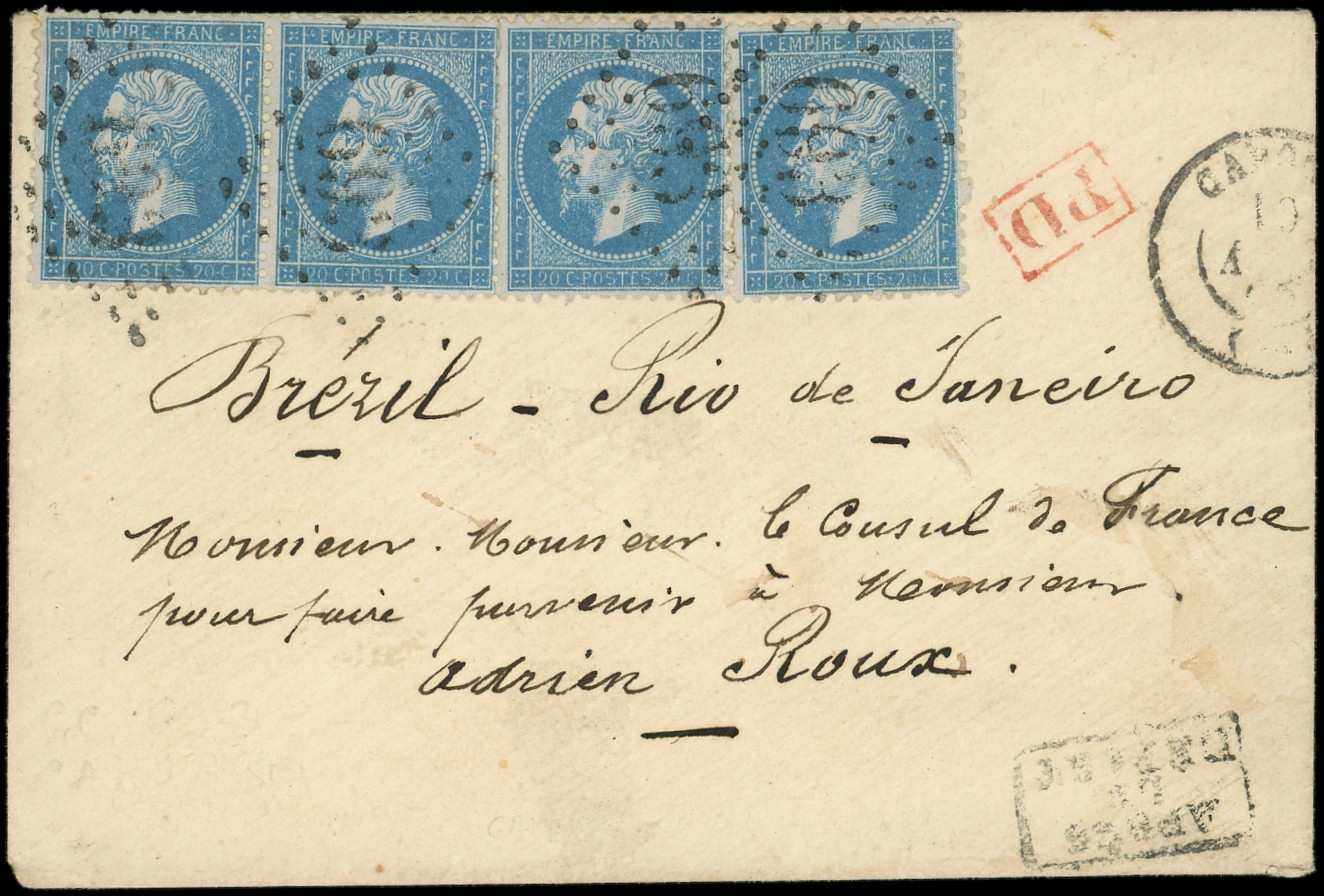 EMPIRE FRANC EMPIRE FRANC EMPIRE FRANC EMPIRE FRANC
20 C POSTES 20 C 20 C POSTES 20 C 20 C POSTES 20 C POSTES 20
PD
10
Brézil - Rio de Janeiro
Monsieur. Monsieur. le Consul de France
pour faire parvenir à Monsieur.
Adrien Roux.
APRÈS
LE
DÉPART